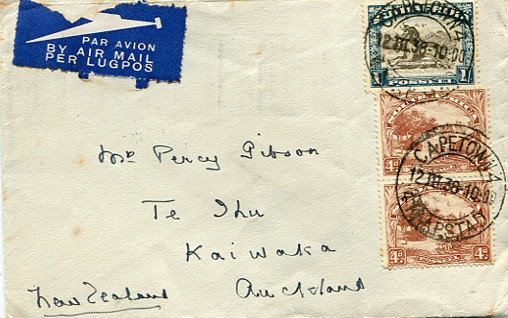 PAR AVION
BY AIR MAIL
PER LUGPOS
12.III.38-10.00
1/-
POSSEEL
4d
CAPETOWN 4
12.III.38-10.00
KAAPSTAD
4d 4d
POSSEEL
Mr Percy Gibson
Te Ihu
Kaiwaka
Auckland
New Zealand